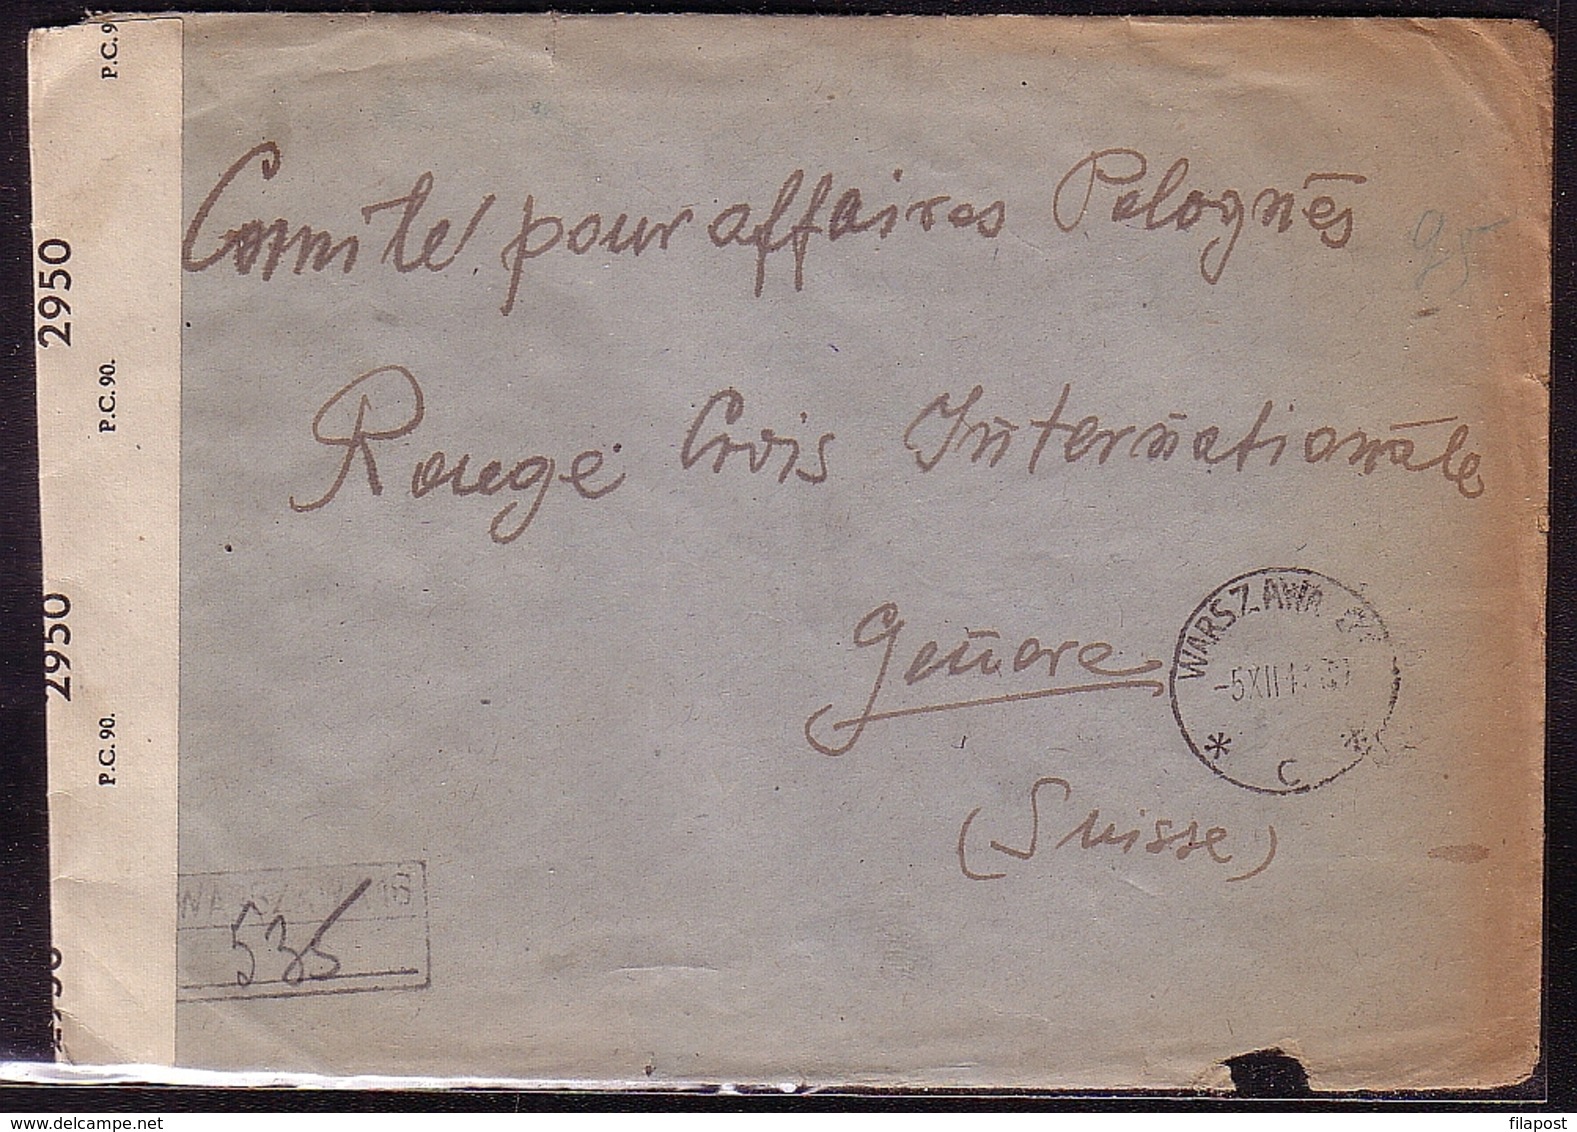 P.C.9
2950
P.C. 90.
2950
P.C. 90.
2950
Comité pour affaires Polognēs
95
Rouge Crois Internationale
Genewe
(Suisse)
WARSZAWA
-5XII4
* C *
WARSZAWA
535
filapost